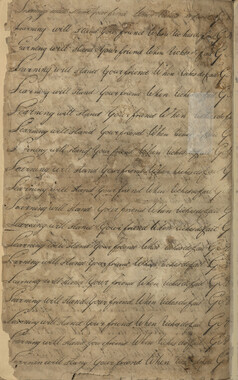 Learning will stand Your friend When
Learning will stand Your friend When riches
Learning will stand Your friend When Riches fail G
Learning will stand Your friend When riches fail G
Learning will stand Your friend When
Learning will stand Your friend When riches
Learning will stand Your friend When riches
Learning will stand Your friend When riches G
Learning will stand Your friend When riches fail G
Learning will stand Your friend When riches fail G
Learning will stand Your friend When riches fail G
Learning will stand Your friend When riches fail G
Learning will stand Your friend When riches fail G
Learning will stand Your friend When riches fail G
Learning will stand Your friend When riches fail G
Learning will stand Your friend When riches fail G
Learning will stand Your friend When riches fail G
Learning will stand Your friend When riches fail G
Learning will stand Your friend When riches fail G